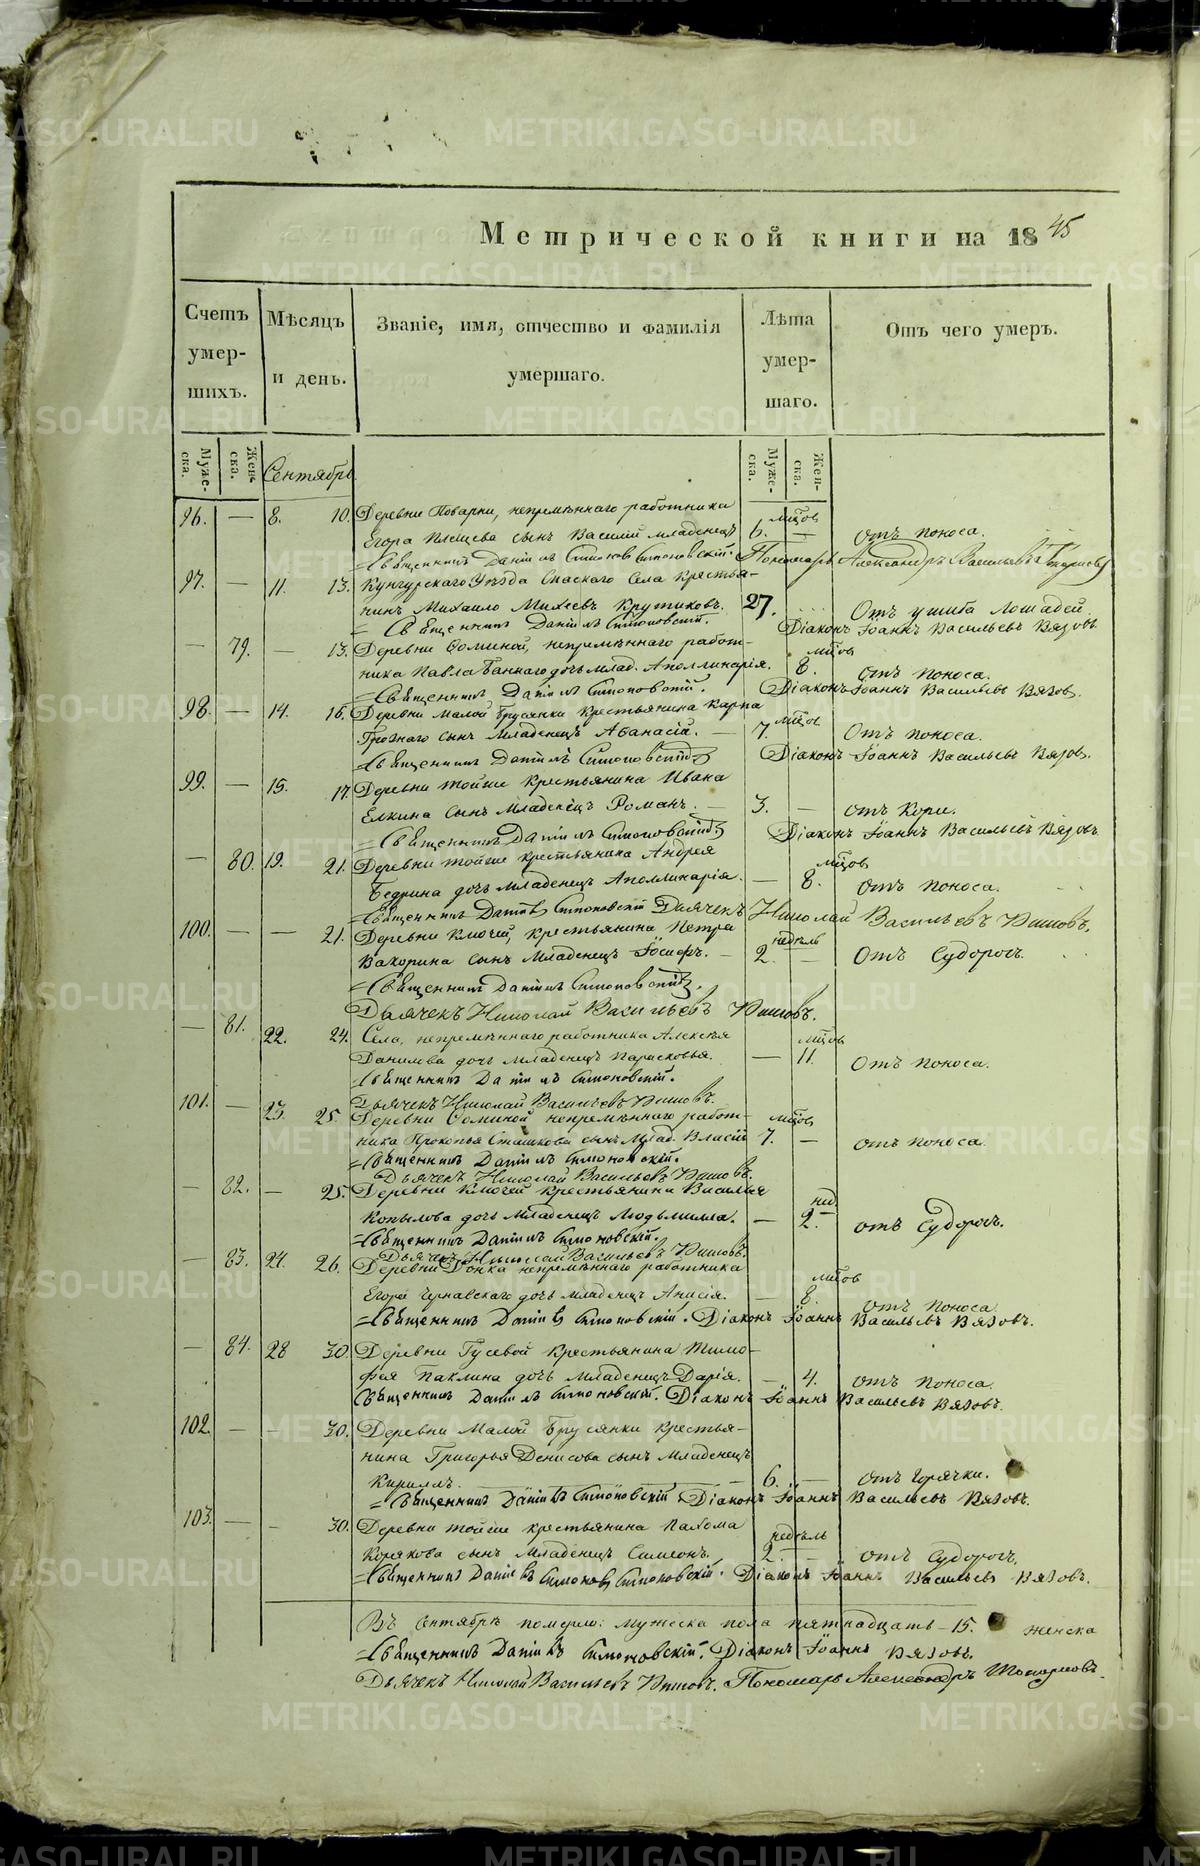 Метрической книги на 1845
Счетъ умер- шихъ.
Мѣсяцъ и день.
Званіе, имя, отчество и фамилія умершаго.
Лѣта умер- шаго.
Отъ чего умеръ.
Муже- ска.
Жен- ска.
Сентябрь
Муже- ска.
Жен- ска.
96. — 8. 10. Деревни Поварни, непремѣннаго работника мѣсцов
Егора сынъ Василій младенецъ 6. — Отъ поноса.
Священникъ Даніилъ Симоновскій. Пономарь Александръ Васильевъ
97. — 11. 13. Кунгурскаго Уѣзда Спаскаго Села крестья-
нинъ Михаило Михеевъ Крутиковъ. 27. Отъ ушиба Лошадей
Священникъ Даніилъ Симоновскій. Діаконъ Іоаннъ Васильевъ Вязовъ
— 79. — 13. Деревни Фоминой, непремѣннаго работ- мѣсцов
ника Павла Баннаго дочь млад. Аполлинарія. 8. отъ поноса.
Священникъ Даніилъ Симоновскій. Діаконъ Іоаннъ Васильевъ Вязов.
98. — 14. 16. Деревни Малой Брусянки крестьянина Карпа мѣсцов
Грознаго сынъ Младенецъ Аѳанасій. — 7. Отъ поноса.
Священникъ Даніилъ Симоновскій Діаконъ Іоаннъ Васильевъ Вязов.
99. — 15. 17. Деревни тойже Крестьянина Ивана
Елкина сынъ Младенецъ Романъ. — 3. — отъ Кори.
Священникъ Даніилъ Симоновскій Діаконъ Іоаннъ Васильевъ Вязовъ
— 80. 19. 21. Деревни тойже крестьянина Андрея мѣсцов
Бедрина дочь младенецъ Аполлинарія. — 8. отъ поноса.
Священникъ Даніилъ Симоновскій Дьячекъ Николай Васильевъ
100. — — 21. Деревни Ключей, крестьянина Петра недѣль
Вакорина сынъ Младенецъ Іосифъ. — 2. — Отъ Судорогъ.
Священникъ Даніилъ Симоновскій.
Дьячекъ Николай Васильевъ
— 81. 22. 24. Села, непремѣннаго работника Алексѣя мѣсцов
Данилова дочь младенецъ Парасковья. — 11. Отъ поноса.
Священникъ Даніилъ Симоновскій.
Дьячекъ Николай Васильевъ
101. — 23. 25. Деревни Фоминой непремѣннаго работ- мѣсцов
ника Прокопья Сташкова сынъ млад. Власій 7. — отъ поноса.
Священникъ Даніилъ Симоновскій.
Дьячекъ Николай Васильевъ
— 82. — 25. Деревни Ключей крестьянина Василья нед.
Копылова дочь младенецъ Людьмилла. — 2. отъ Судорогъ.
Священникъ Даніилъ Симоновскій.
Дьячекъ Николай Васильевъ
— 83. 24. 26. Деревни непремѣннаго работника мѣсцов
Егора Чернавскаго дочь младенецъ Анисія. — 8. отъ поноса
Священникъ Даніилъ Симоновскій. Діаконъ Іоаннъ Васильевъ Вязовъ.
— 84. 28 30. Деревни Гусевой крестьянина Тимо-
фея Паклина дочь младенецъ Дарія. — 4. отъ поноса.
Священникъ Даніилъ Симоновскій. Діаконъ Іоаннъ Васильевъ Вязовъ.
102. — — 30. Деревни Малой Брусянки крестья-
нина Григорья Денисова сынъ младенецъ
Кириллъ. — 6. — отъ Горячки.
Священникъ Даніилъ Симоновскій Діаконъ Іоаннъ Васильевъ Вязовъ.
103. — — 30. Деревни тойже крестьянина Пахома недѣль
Корякова сынъ Младенецъ Симеонъ. 2 — отъ Судорогъ.
Священникъ Даніилъ Симоновскій. Діаконъ Іоаннъ Васильевъ Вязовъ.
Въ Сентябрѣ померло: мужеска пола пятнадцать — 15. женска
Священникъ Даніилъ Симоновскій. Діаконъ Іоаннъ Вязовъ.
Дьячекъ Николай Васильевъ Пономарь Александръ
METRIKI.GASO-URAL.RU